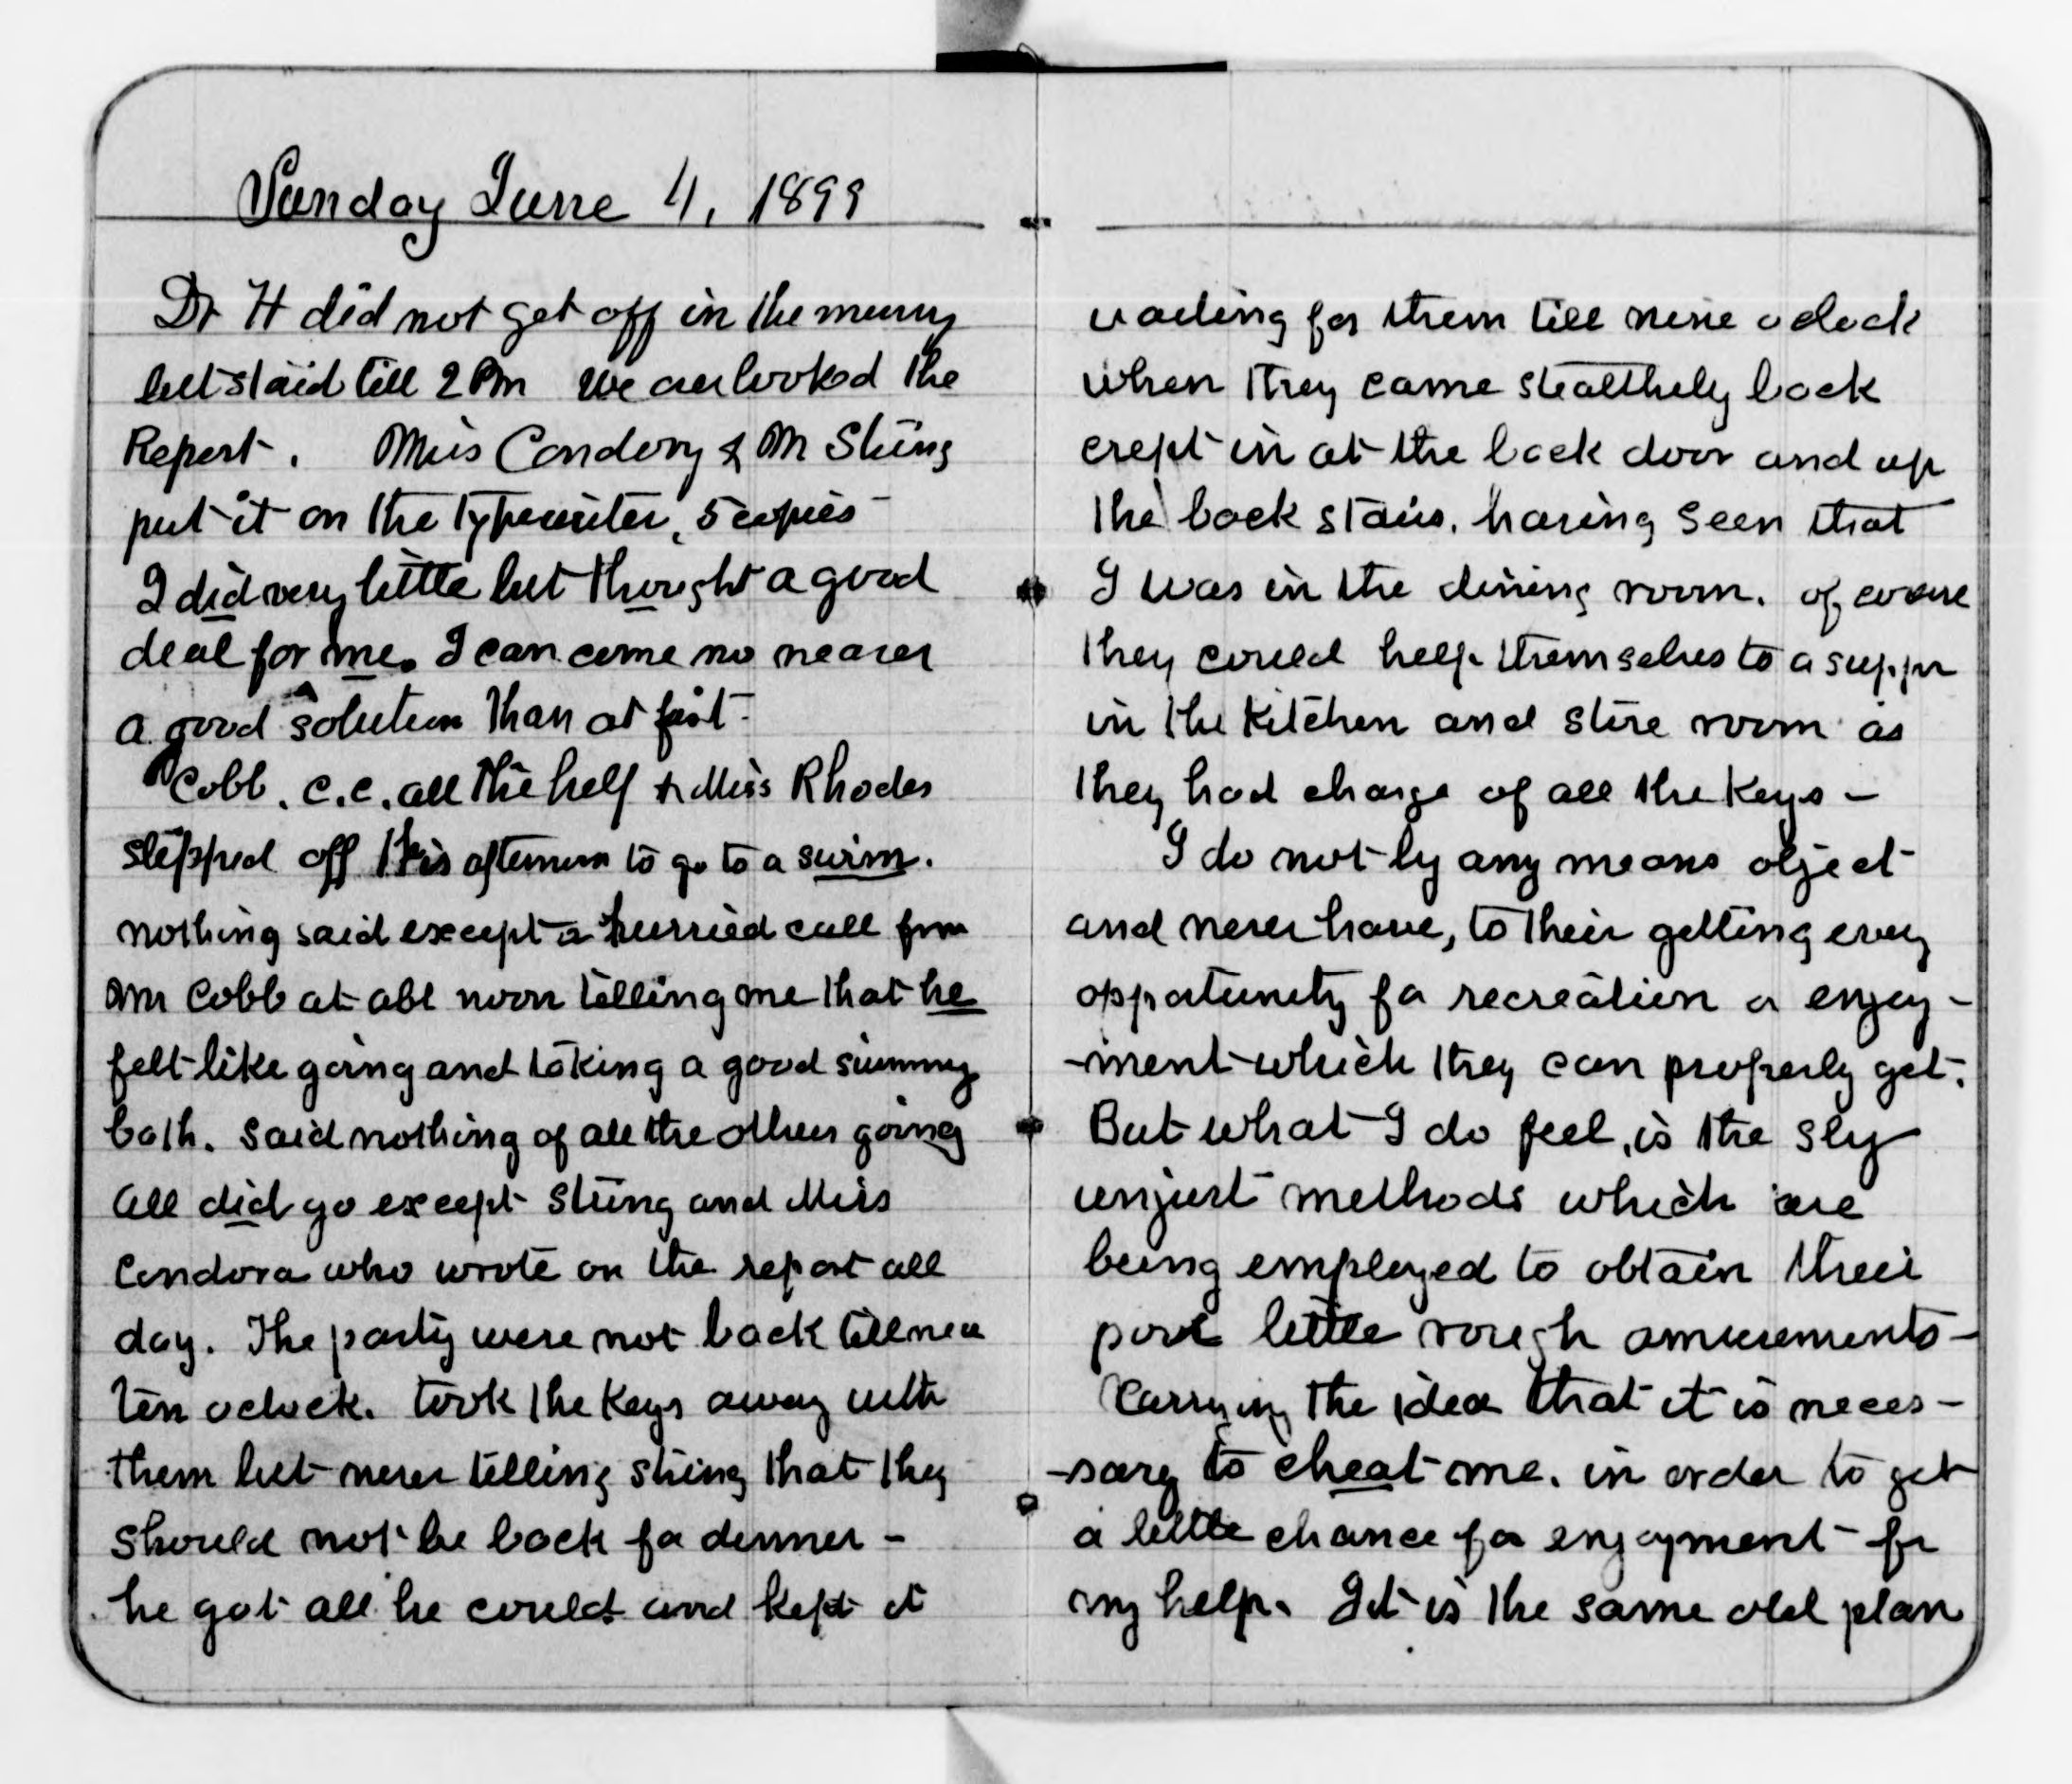 Sunday June 4, 1899
Dr H did not get off in the morning
but staid till 2 Pm We overlooked the
Report. Miss Condory & Mr String
put it on the typewriter, 5 copies
I did very little but thought a good
deal for me. I can come no nearer
a good solution than at first.
Cobb, C.C. all the help & Miss Rhodes
slipped off this afternoon to go to a swim.
nothing said except a hurried call from
Mr Cobb at abt noon telling me that he
felt like going and taking a good swimming
bath. said nothing of all the others going
all did go except String and Miss
Condora who wrote on the report all
day. The party were not back till near
ten oclock. took the keys away with
them but never telling string that they
should not be back for dinner -
he got all he could and kept it
waiting for them till nine oclock
when they came stealthely back
crept in at the back door and up
the back stairs. having seen that
I was in the dining room. of course
they could help themselves to a supper
in the kitchen and store room as
they had charge of all the keys -
I do not by any means object
and never have, to their getting every
opportunity for recreation or enjoy -
-ment which they can properly get.
But what I do feel, is the sly
unjust methods which are
being employed to obtain their
poor little rough amusements -
Carrying the idea that it is neces -
-sary to cheat me. in order to get
a little chance for enjoyment - for
my help. It is the same old plan